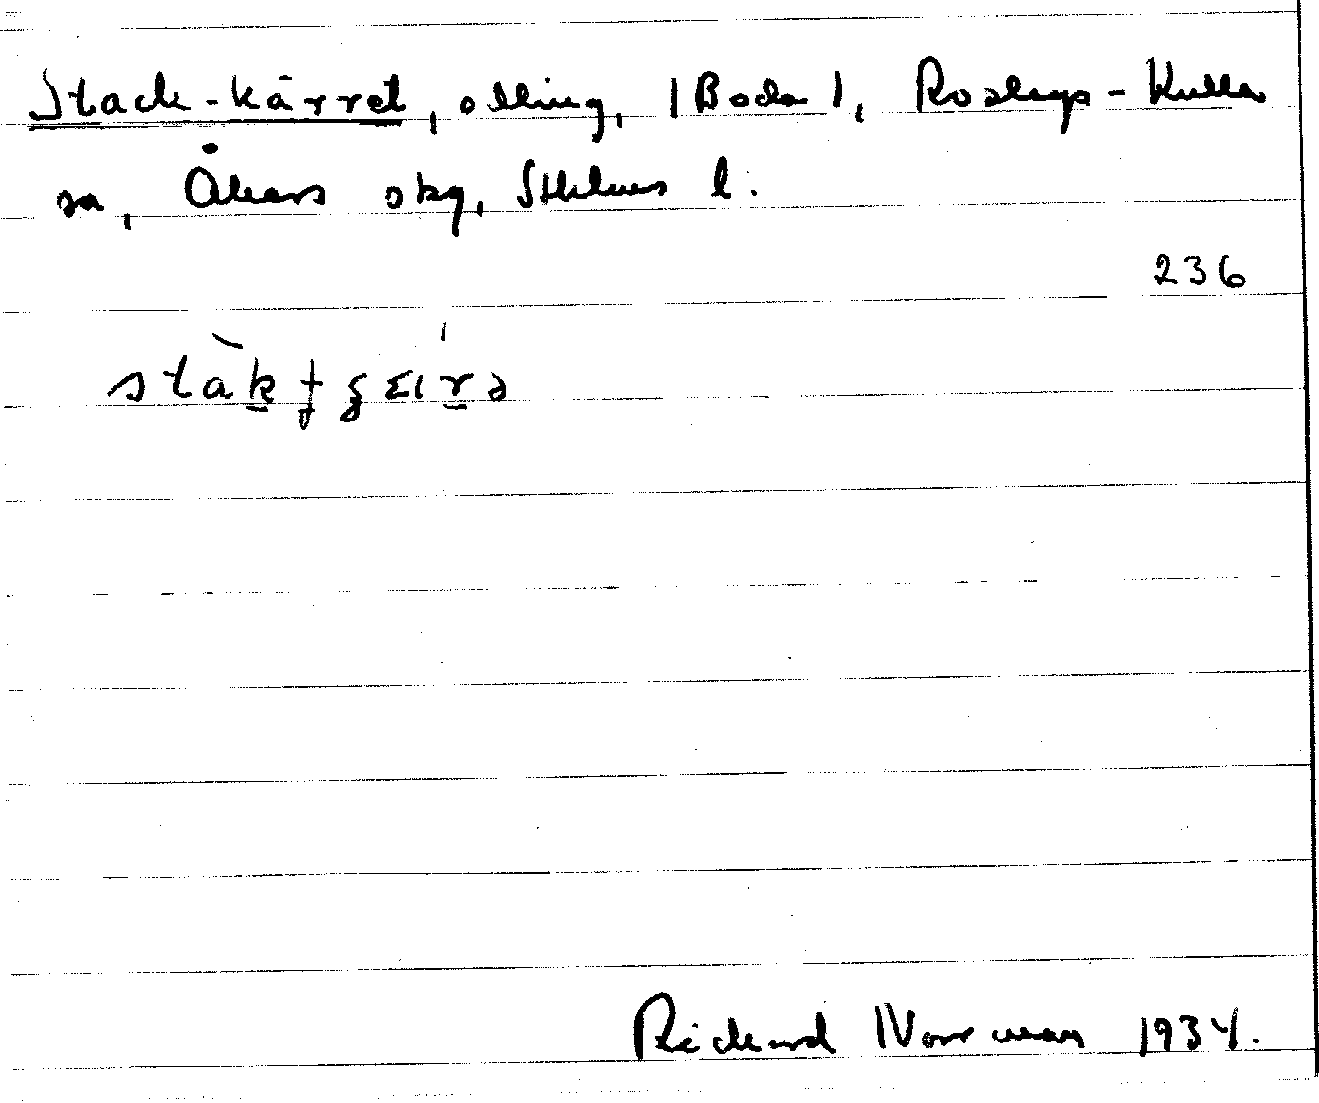 Stack-kärret, ollling, (Boda), Roslags-Kulla
sn, Åkers skg, Sthlms l.
236
Rickard Norrman 1934.